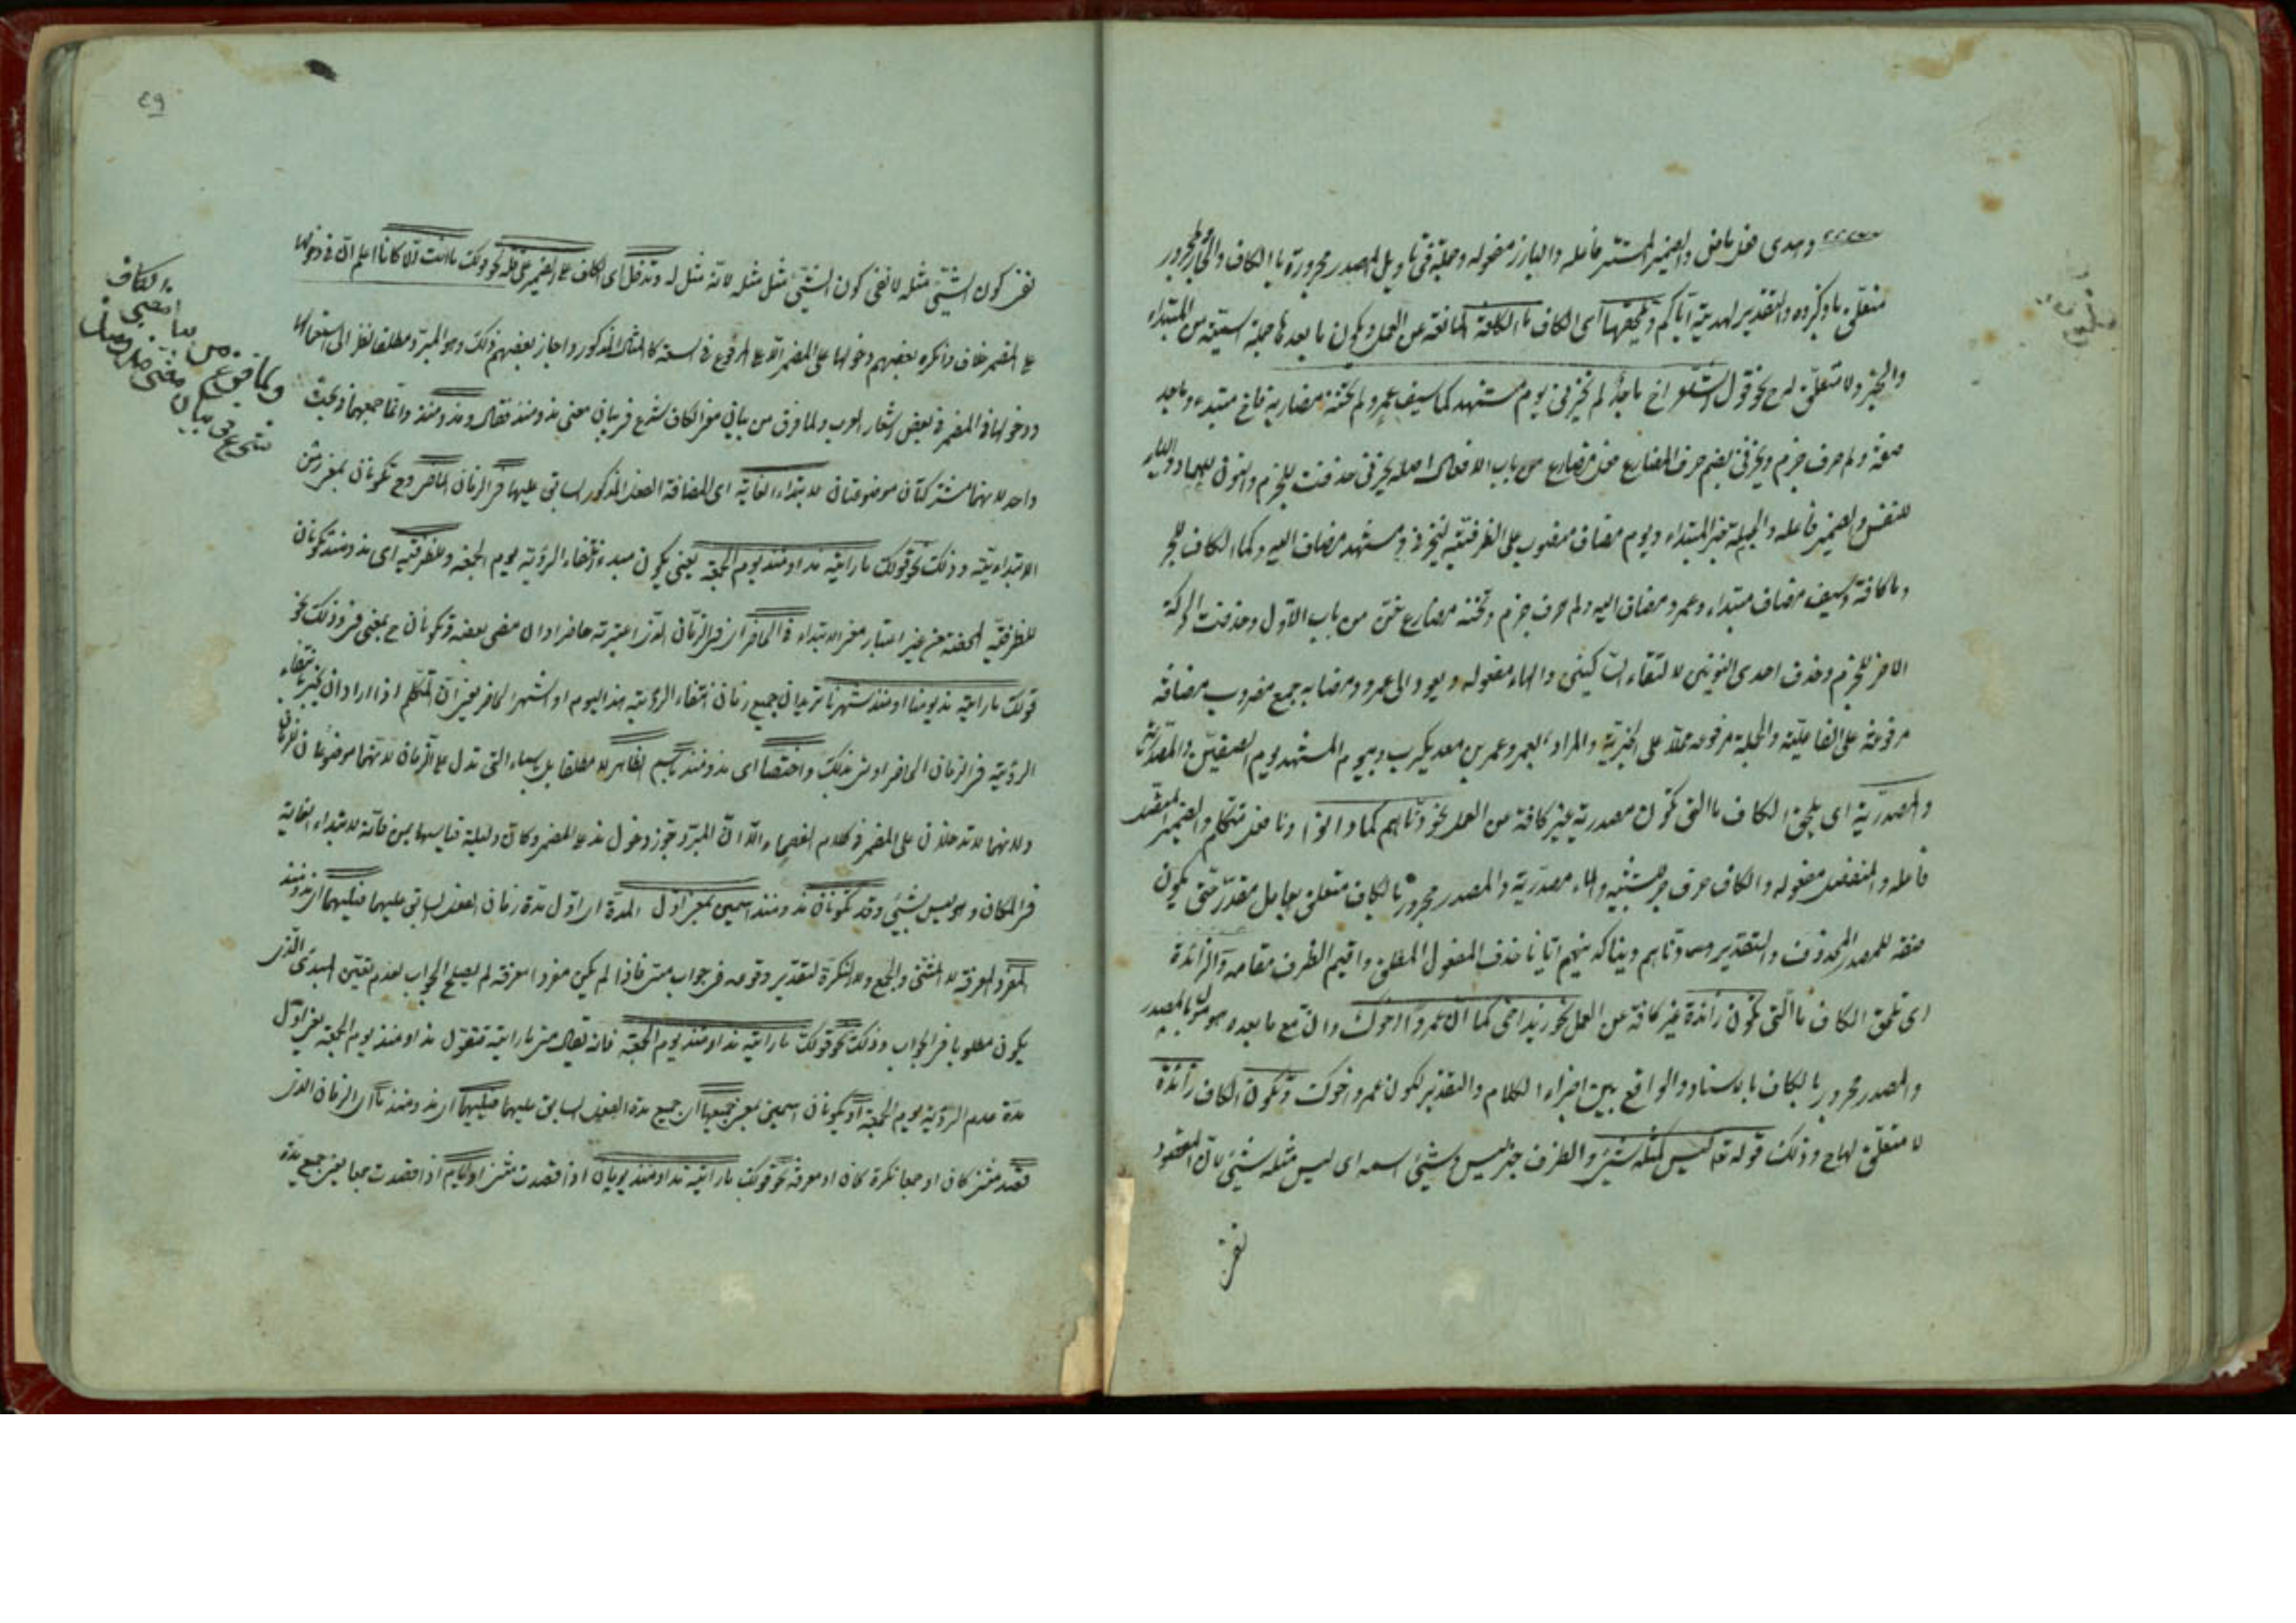 وهدى فعل ماض والضمير المستتر فاعله والبارز مفعوله وجملة في تأويل المصدر مجرورة بالكاف والجار والمجرور
متعلق باذكروه والتقدير لهدايته اياكم وتلحقها اى الكاف ما الكافة المانعة عن العمل ويكون ما بعدها جملة اسمية من المبتداء
والخبر ولا متعلق لها ح نحو قول الشاعر اخ ماجد لم يخزنى يوم مشهد كما سيف عمرو لم تخنه مضاربه فاخ مبتداء وماجد
صفة ولم حرف جزم ويخزنى بضم حرف المضارع فعل مضارع من باب الافعال اصله يخزى حذفت للجزم والنون للعماد والياء
للنفس والضمير فاعله والجملة خبر المبتداء ويوم مضاف منصوب على الظرفية ليخزنى ومشهد مضاف اليه وكما الكاف للجر
وما كافة وسيف مضاف مبتداء وعمرو مضاف اليه ولم حرف جزم وتخنه مضارع خن من باب الاول وحذفت الحركة
الاخر للجزم وحذف احدى النونين لالتقاء الساكنين والهاء مفعوله ويعود الى عمرو ومضاربه جمع مضروب مضافة
مرفوعة على الفاعلية والجملة مرفوعة محلا على الخبرية والمراد بعمرو عمرو بن معديكرب وبيوم المشهد يوم الصفين
والمصدرية اى يلحق الكاف ما التى تكون مصدرية غير كافة من العمل نحو دناهم كما دانوا ودنا فعل متكلم والضمير المتصل
فاعله والمنفصل مفعوله والكاف حرف جر للتشبيه والماء مصدرية والمصدر مجرور بالكاف متعلق بعامل مقدر حتى يكون
صفة للمصدر المحذوف والتقدير ودناهم ديناً كدينهم ايانا حذف المفعول المطلق واقيم الظرف مقامه والزائدة
اى تلحق الكاف ما التى تكون زائدة غير كافة عن العمل نحو زيد اخى كما ان عمرواً اخوك وان مع ما بعده مؤول بالمصدر
والمصدر مجرور بالكاف باسناد والواقع بين اجزاء الكلام والتقدير لكون عمرو اخوك وتكون الكاف زائدة
لا متعلق لها ح وذلك قوله تع ليس كمثله شئ والظرف خبر ليس وشئ اسمه اى ليس مثله شئ لان المقصود
نفى
٤٩
نفى كون الشئ مثله لا نفى كون الشئ مثل مثله لانه مثل له وتدخل اى الكاف على الضمير على قلة نحو قولك ما انت كانا اعلم ان فى دخولها
على المضمر خلاف وانكره بعضهم دخولها على المضمر الا على المرفوع فى السعة كالمثال المذكور واجاز بعضهم ذلك وهو المبرد مطلقا نظر الى استعمالها
ودخولها فى المضمر فى بعض اشعار العرب ولما فرق من بيان معنى الكاف شرع فى بيان معنى مذ ومنذ فقال ومذ ومنذ وانما جمعهما فى بحث
واحد لانهما مشتركتان موضوعتان لابتداء الغاية اى المسافة الفعل المذكور السابق عليها فى الزمان الماضى وح تكونان بمعنى من
الابتدائية وذلك نحو قولك ما رأيته مذ او منذ يوم الجمعة يعنى يكون مبدء انتفاء الرؤية يوم الجمعة وللظرفية اى مذ ومنذ تكونان
للظرفية المحضة من غير اعتبار معنى الابتداء فى الحاضر اى فى الزمان الذى اعتبرته حاضرا وان مضى بعضه وتكونان ح بمعنى فى وذلك نحو
قولك ما رأيته مذ يومنا او منذ شهرنا تريد ان جميع زمان انتفاء الرؤية هذا اليوم او الشهر الحاضر يعنى ان المتكلم اذا اراد ان يخبر بانتفاء
الرؤية فى الزمان الحاضر اورد بذلك واختصا اى مذ ومنذ باسم الظاهر لا مطلقا بل باسماء التى تدل على الزمان لانهما موضوعان للزمان
ولانهما لا تدخلان على المضمر فى كلام الفصحاء الا ان المبرد جوز دخول مذ على المضمر وكان دليله قياسها بمن فانه لابتداء الغاية
فى المكان وهو ليس بشئ وقد تكونان مذ ومنذ اسمين بمعنى اول المدة اى اول مدة زمان الفعل السابق عليهما فيليهما اى مذ ومنذ
المفرد المعرفة لا المثنى والجمع ولا النكرة لتقدير وقوعه فى جواب متى فاذا لم يكن مفردا معرفة لم يصلح الجواب لعدم تعيين المبدء الذى
يكون مطلوبا فى الجواب وذلك نحو قولك ما رأيته مذ او منذ يوم الجمعة فانه يقال متى ما رأيته فتقول مذ او منذ يوم الجمعة يعنى اول
مدة عدم الرؤية يوم الجمعة او يكونان اسمين بمعنى جميعها اى جميع مدة الفعل السابق عليهما فيليهما اى مذ ومنذ ما اى الزمان الذى
قصد مثنى كان او جمعا نكرة كان او معرفة نحو قولك ما رأيته مذ او منذ يومان اذا قصدت مثنى او ايام اذا قصدت جمعا يعنى جميع مدة
ولما فرغ من بيان معنى الكاف
شرع فى بيان معنى مذ ومنذ